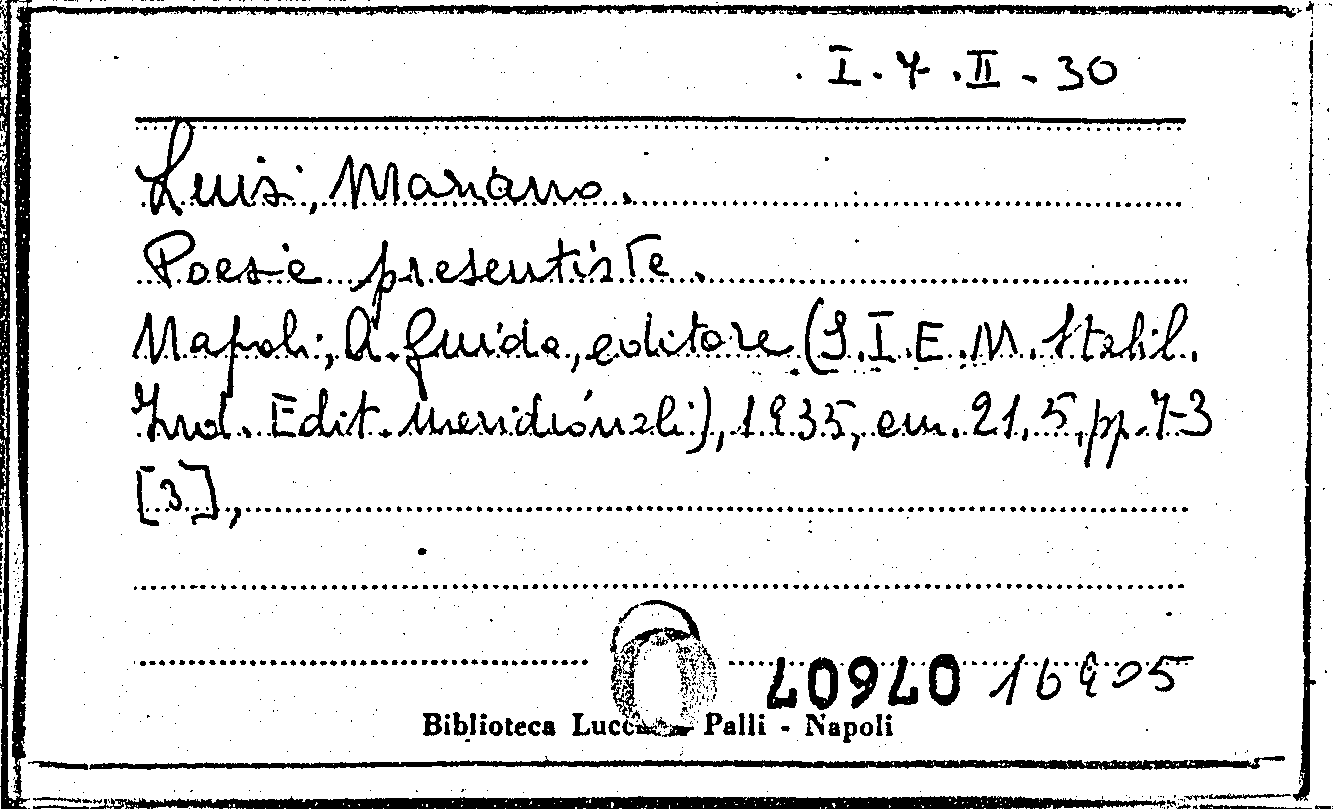 I. 7. II - 30
Luisi, Mariano.
Poesie presentiste.
Napoli, A. Guida, editore (S.I.E.M. Stabil.
Ind. Edit. Meridionali), 1935, cm. 21,5, pp. 7-3
[3],
40940 16905
Biblioteca Palli - Napoli